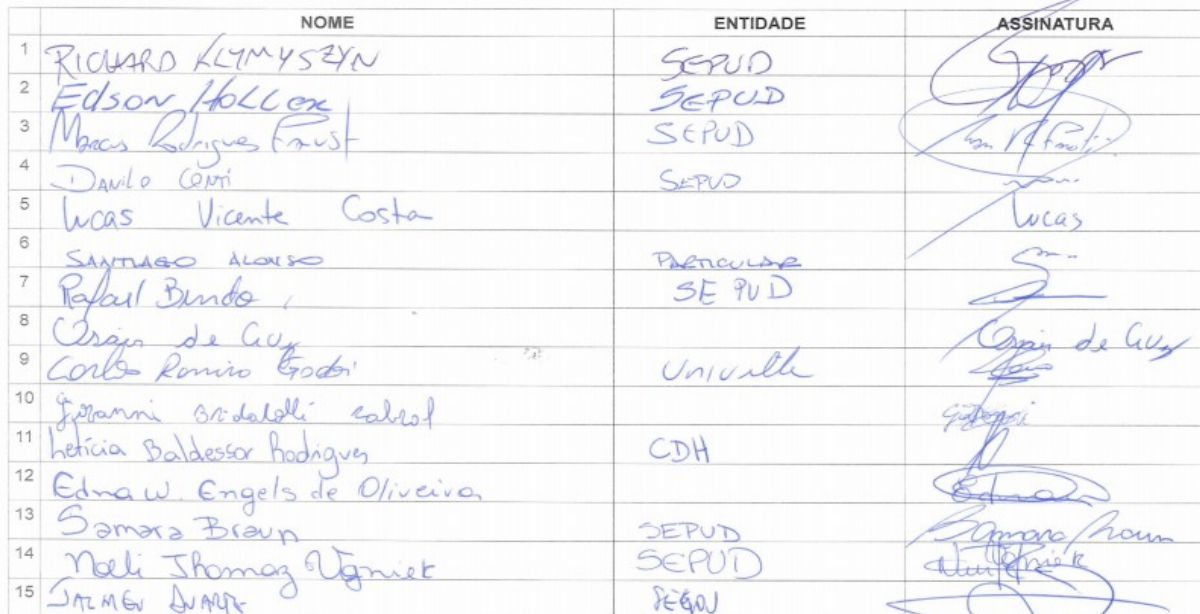 NOME ENTIDADE ASSINATURA
1 RICHARD KLYMYSZYN SEPUD
2 EDSON HOLLER SEPUD
3 Marcus Rodrigues Faust SEPUD
4 DANILO CONTI SEPUD
5 Lucas Vicente Costa Lucas
6 SANTIAGO ALONSO PARTICULAR
7 Rafael Bendo SEPUD
8 de de
9 Carlos Ramiro Godoi Univille
10
11 Letícia Baldessar Rodrigues CDH
12 Edna W. Engels de Oliveira Edna
13 Samara Braun SEPUD Samara Braun
14 Noeli Thomaz Vojniek SEPUD
15 JALMEI DUARTE